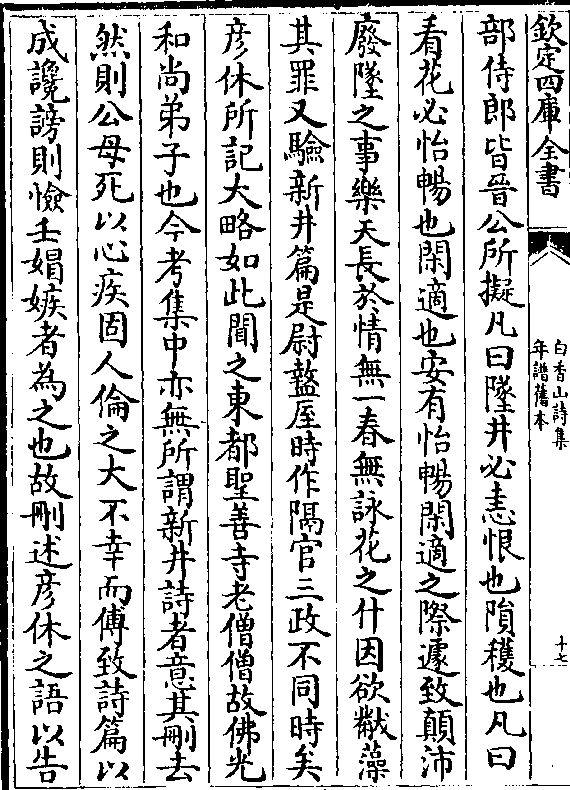 欽定四庫全書
白香山詩集
年譜舊本
十七
部侍郎皆晉公所擬凡曰墜井必恚恨也隕穫也凡曰
看花必怡暢也閑適也安有怡暢閑適之際遽致顛沛
廢墜之事樂天長於情無一春無詠花之什因欲黻藻
其罪又驗新井篇是尉盩厔時作隔官三政不同時矣
彦休所記大略如此聞之東都聖善寺老僧僧故佛光
和尚弟子也今考集中亦無所謂新井詩者意其刪去
然則公母死以心疾固人倫之大不幸而傅致詩篇以
成讒謗則憸壬媢嫉者為之也故刪述彦休之語以告